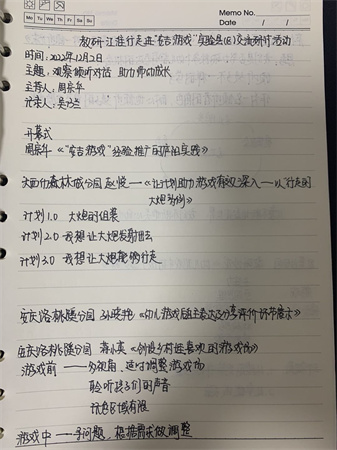 Memo No.
Mo Tu We Th Fr Sa Su
Date / /
教研·江淮行走进“安吉游戏”实验县(区)交流研讨活动
时间：2022年12月2日
主题：观察倾听对话 助力师幼成长
主持人：周宗华
记录人：吴
开幕式
周宗华《“安吉游戏”经验推广的 实践》
森林城分园 赵悦——《让计划助力游戏有效深入——以“行走的
大炮为例》
计划1.0 大炮的组装
计划2.0 我想让大炮发射出去
计划3.0 我想让大炮能够行走
分园 孙晓艳《幼儿游戏自主表达及分享评价环节展示》
分园 蒋小英《创设乡村娃喜欢的游戏场》
游戏前——多视角，适时调整游戏场
聆听孩子们的声音
区域有限
游戏中——寻问题，根据需求做调整